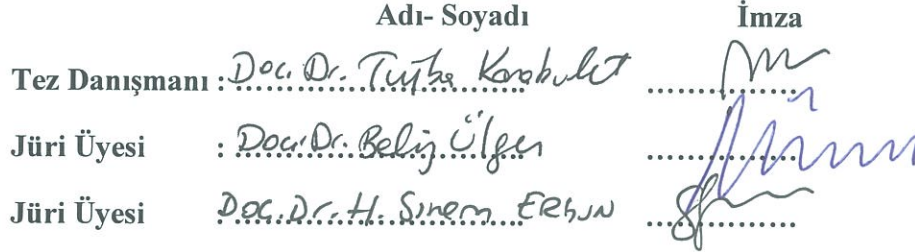 Adı- Soyadı İmza
Tez Danışmanı : Doç. Dr. Tuğba Karabulut
Jüri Üyesi : Doç. Dr. Beliz Ülgen
Jüri Üyesi Doç. Dr. H. Sinem ERGUN